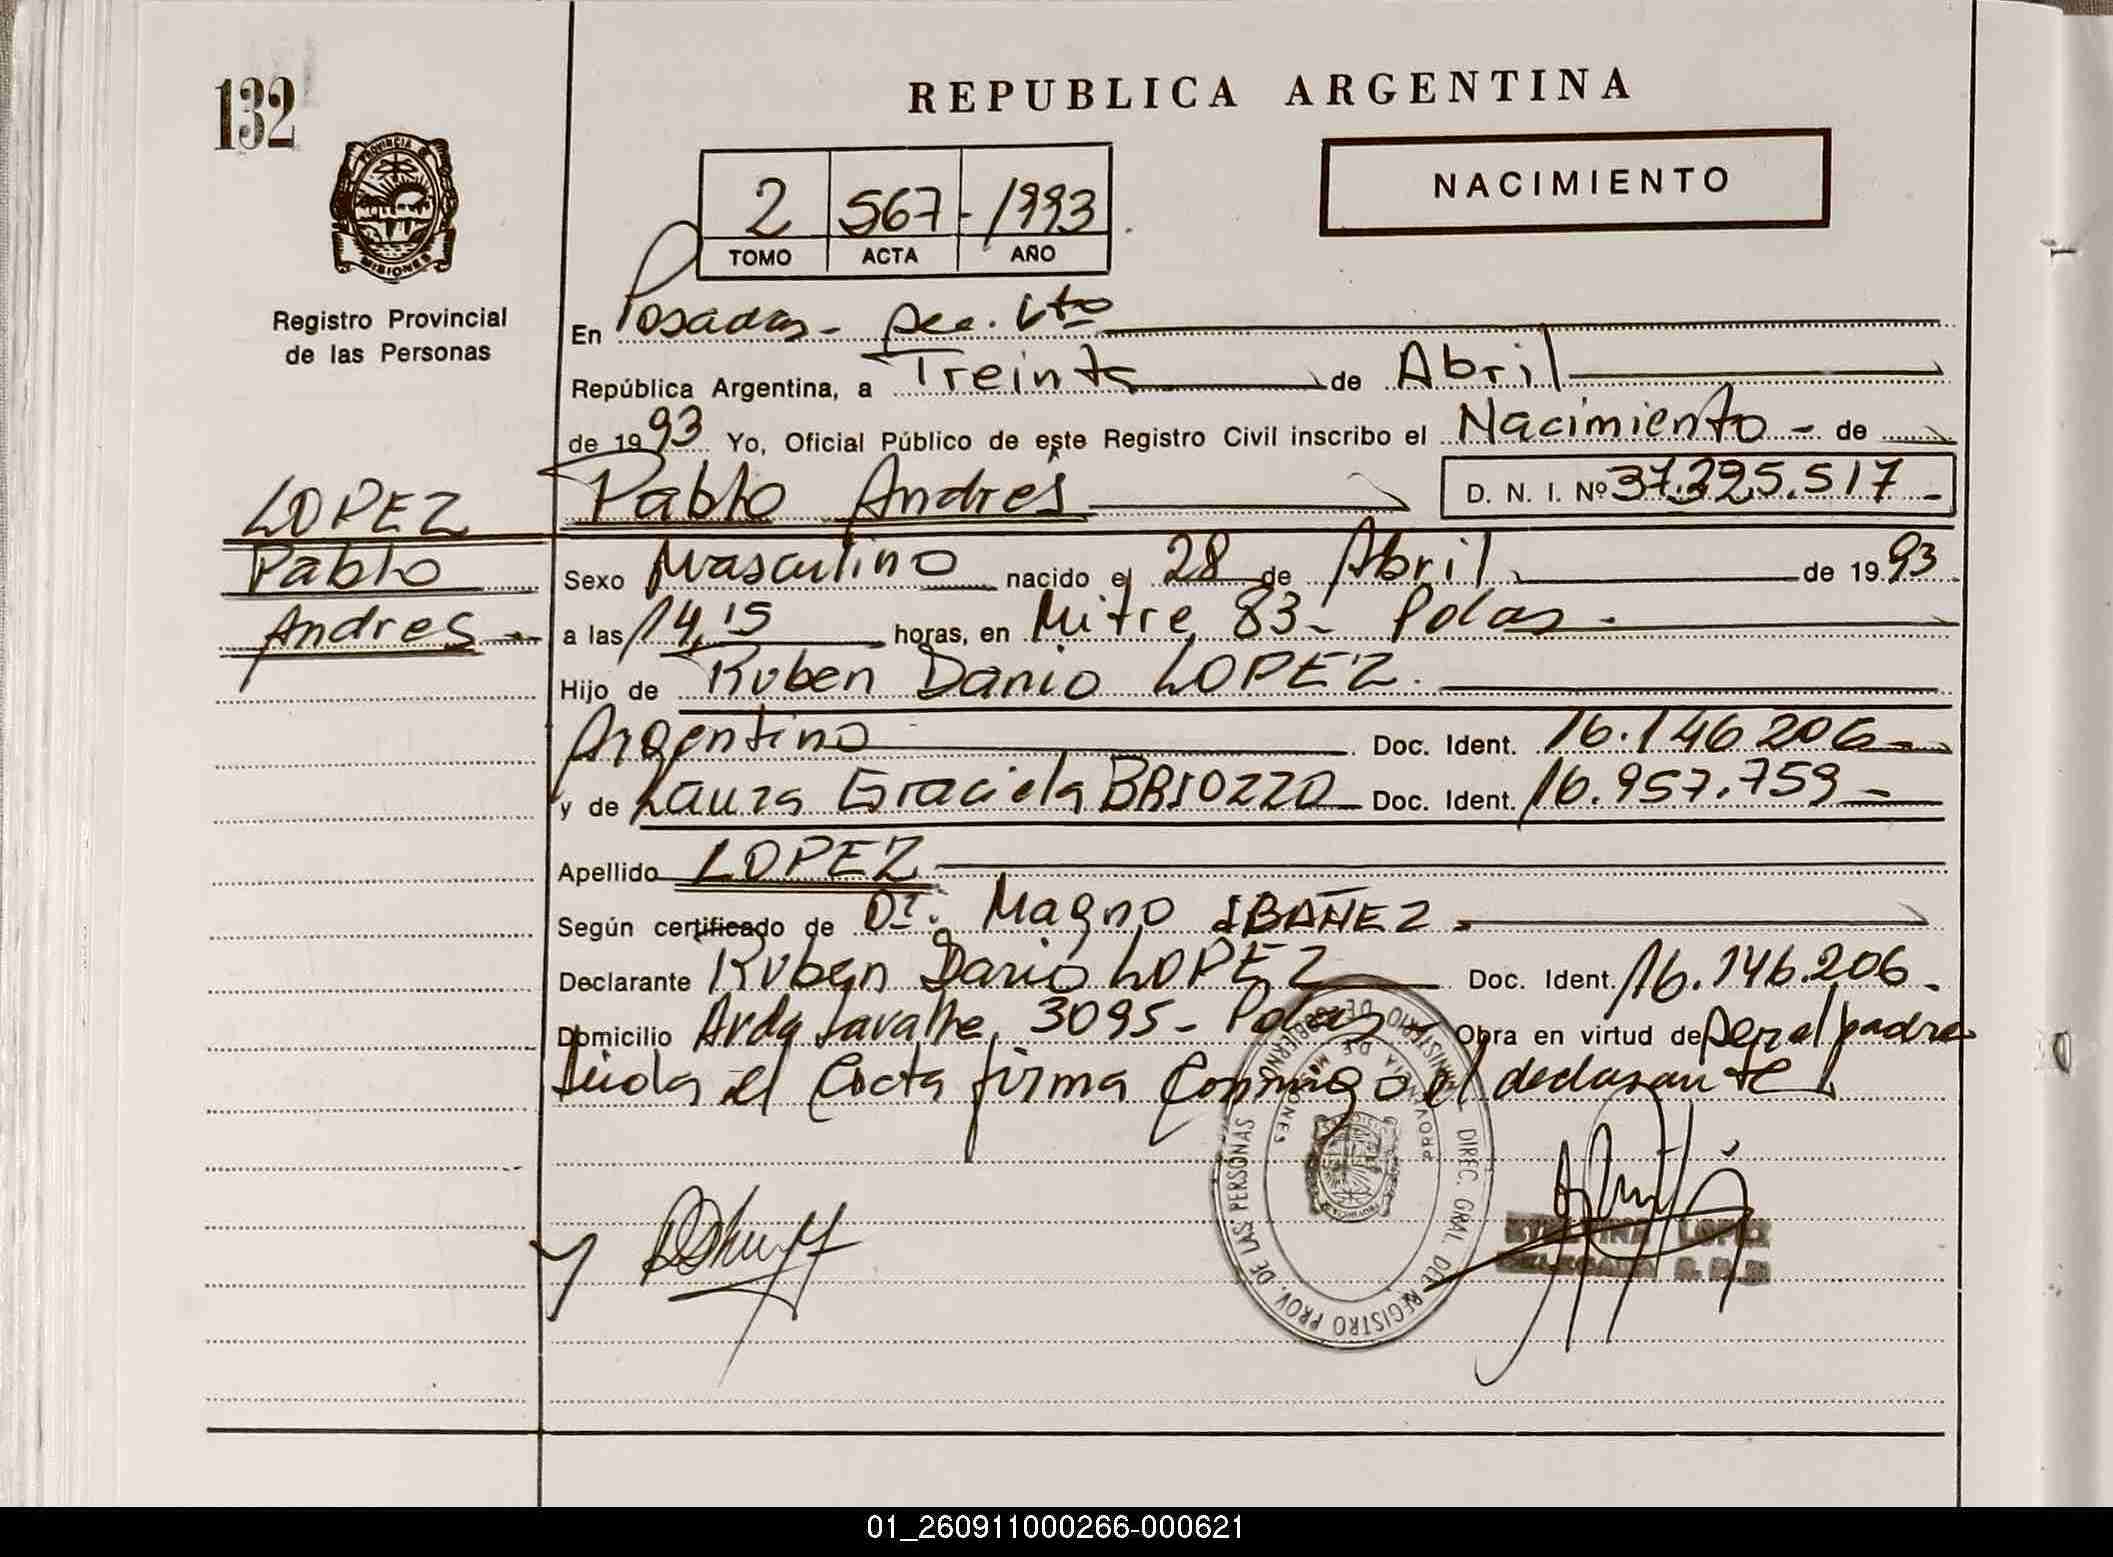 132
REPUBLICA ARGENTINA
PROVINCIA DE
MISIONES
2 567 - 1993
TOMO ACTA AÑO
NACIMIENTO
Registro Provincial
de las Personas
En Posadas - Sec. 6ta
República Argentina, a Treinta de Abril
de 1993 Yo, Oficial Público de este Registro Civil inscribo el Nacimiento - de
Pablo Andres D. N. I. Nº 37.225.517 -
LOPEZ
Pablo
Andres -
Sexo Masculino nacido el 28 de Abril de 1993
a las 14,15 horas, en Mitre 83 - Pdas.
Hijo de Ruben Dario LOPEZ.
Argentino Doc. Ident. 16.146.206 -
y de Laura Graciela BRIOZZO Doc. Ident. 16.957.759 -
Apellido LOPEZ
Según certificado de Dr. Magno IBAÑEZ.
Declarante Ruben Dario LOPEZ Doc. Ident. 16.146.206.
Domicilio Avda Lavalle 3095 - Pdas - Obra en virtud de ser el padre
Leida el acta firma conmigo el declarante
MINISTERIO DE GOBIERNO
PROVINCIA DE MISIONES
DIREC. GRAL. DEL REGISTRO PROV. DE LAS PERSONAS
LOPEZ
01_260911000266-000621